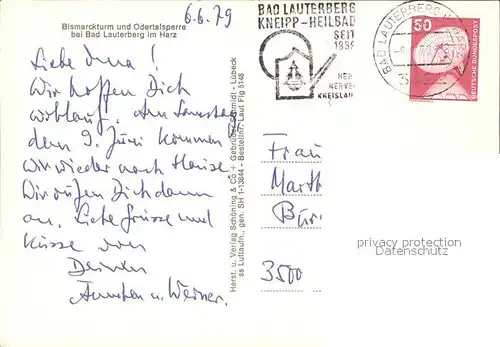 6.6.79
Bismarckturm und Odertalsperre
bei Bad Lauterberg im Harz
Liebe
Wir hoffen Dich
wohlauf. Am Samstag
den 9. Juni kommen
wir wieder nach Hause.
Wir rufen Dich dann
an. Liebe Grüsse und
Küsse von
Deinen
u. Werner.
Herst. u. Verlag Schöning & Co + Gebrüder Schmidt - Lübeck
ss Luftaufn., gen. SH 1-13844 - Bestellnr. Laut Flg 5148
BAD LAUTERBERG
KNEIPP-HEILBAD
SEIT
1839
HER
NERVE
KREISLAU
BAD LAUTERBERG
50
DEUTSCHE BUNDESPOST
Frau
Marth
3500
privacy protection
Datenschutz